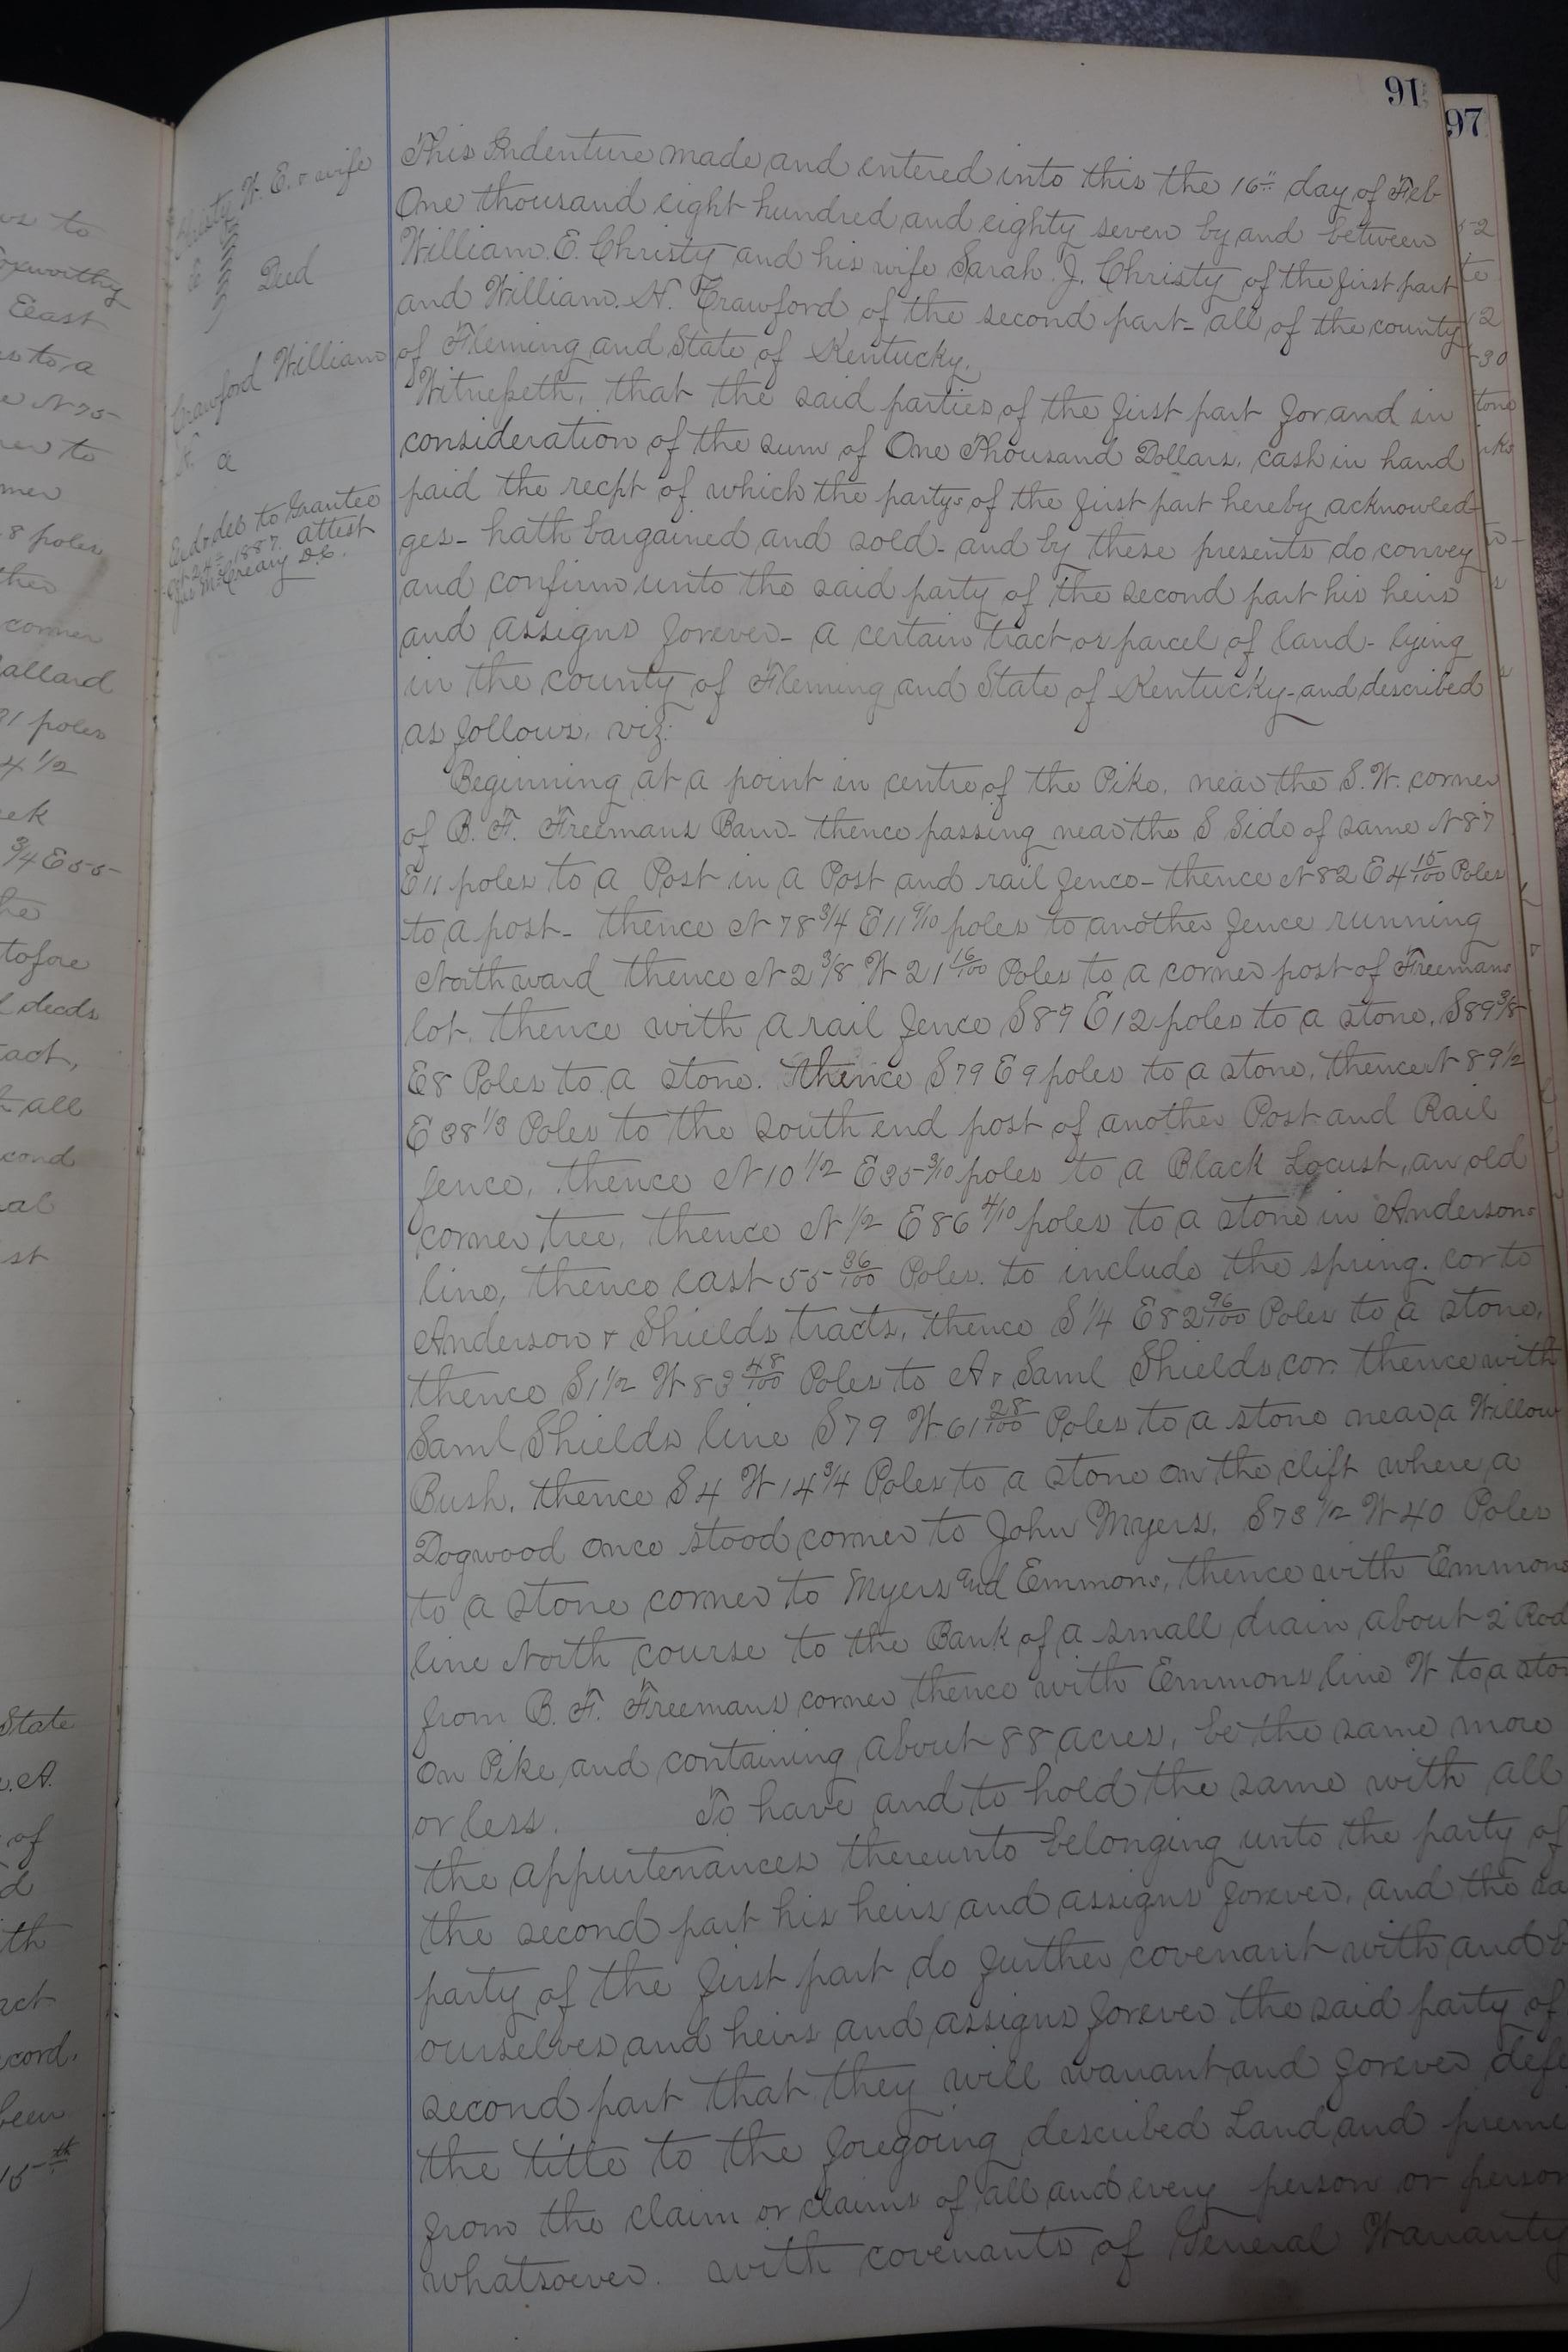 91
97
Christy W. E. & wife
to
Deed
Crawford William
H. a
End & del to Grantee
Oct 24th 1887. attest
Jas McCreary D.C.
This Indenture made and entered into this the 16" day of Feb
One thousand eight hundred and eighty seven by and between
William. E. Christy and his wife Sarah. J. Christy of the first part
and William. H. Crawford of the second part- all of the county
of Fleming and State of Kentucky.
Witnesseth, that the said parties of the first part for and in
consideration of the sum of One Thousand Dollars, cash in hand
paid the recpt of which the partys of the first part hereby acknowled-
ges- hath bargained and sold- and by these presents do convey
and confirm unto the said party of the second part his heirs
and assigns forever- a certain tract or parcel of land- lying
in the county of Fleming and State of Kentucky- and described
as follows, viz:
Beginning at a point in centre of the Pike, near the S. W. corner
of B. F. Freemans Barn- thence passing near the S Side of same N 87
E 11 poles to a Post in a Post and rail fence- thence N 82 E 4 15/100 Poles
to a post- thence N 78 3/4 E 11 9/10 poles to another fence running
Northward thence N 2 3/8 W 21 16/100 Poles to a corner post of Freemans
lot, thence with a rail fence S 87 E 12 poles to a stone, S 89 3/8
E 8 Poles to a stone. thence S 79 E 9 poles to a stone, thence N 89 1/2
E 38 1/3 Poles to the south end post of another Post and Rail
fence, thence N 10 1/2 E 35 3/10 poles to a Black Locust, an old
corner tree, thence N 1/2 E 86 4/10 poles to a stone in Andersons
line, thence east 55 36/100 Poles. to include the spring. cor to
Anderson & Shields tracts, thence S 1/4 E 82 96/100 Poles to a stone,
thence S 1 1/2 W 83 48/100 Poles to A & Saml Shields cor. thence with
Saml Shields line S 79 W 61 28/100 Poles to a stone near a Willow
Bush, thence S 4 W 14 3/4 Poles to a stone on the clift where a
Dogwood once stood corner to John Myers, S 73 1/2 W 40 Poles
to a stone corner to Myers and Emmons, thence with Emmons
line North course to the Bank of a small drain about 2 Rod
from B. F. Freemans corner thence with Emmons line W to a ston
on Pike and containing about 88 acres, be the same more
or less. To have and to hold the same with all
the appurtenances thereunto belonging unto the party of
the second part his heirs and assigns forever, and the sa
party of the first part do further covenant with and b
ourselves and heirs and assigns forever the said party of
second part that they will warrant and forever defe
the title to the foregoing described Land and premi
from the claim or claims of all and every person or person
whatsoever. with covenants of General Warranty